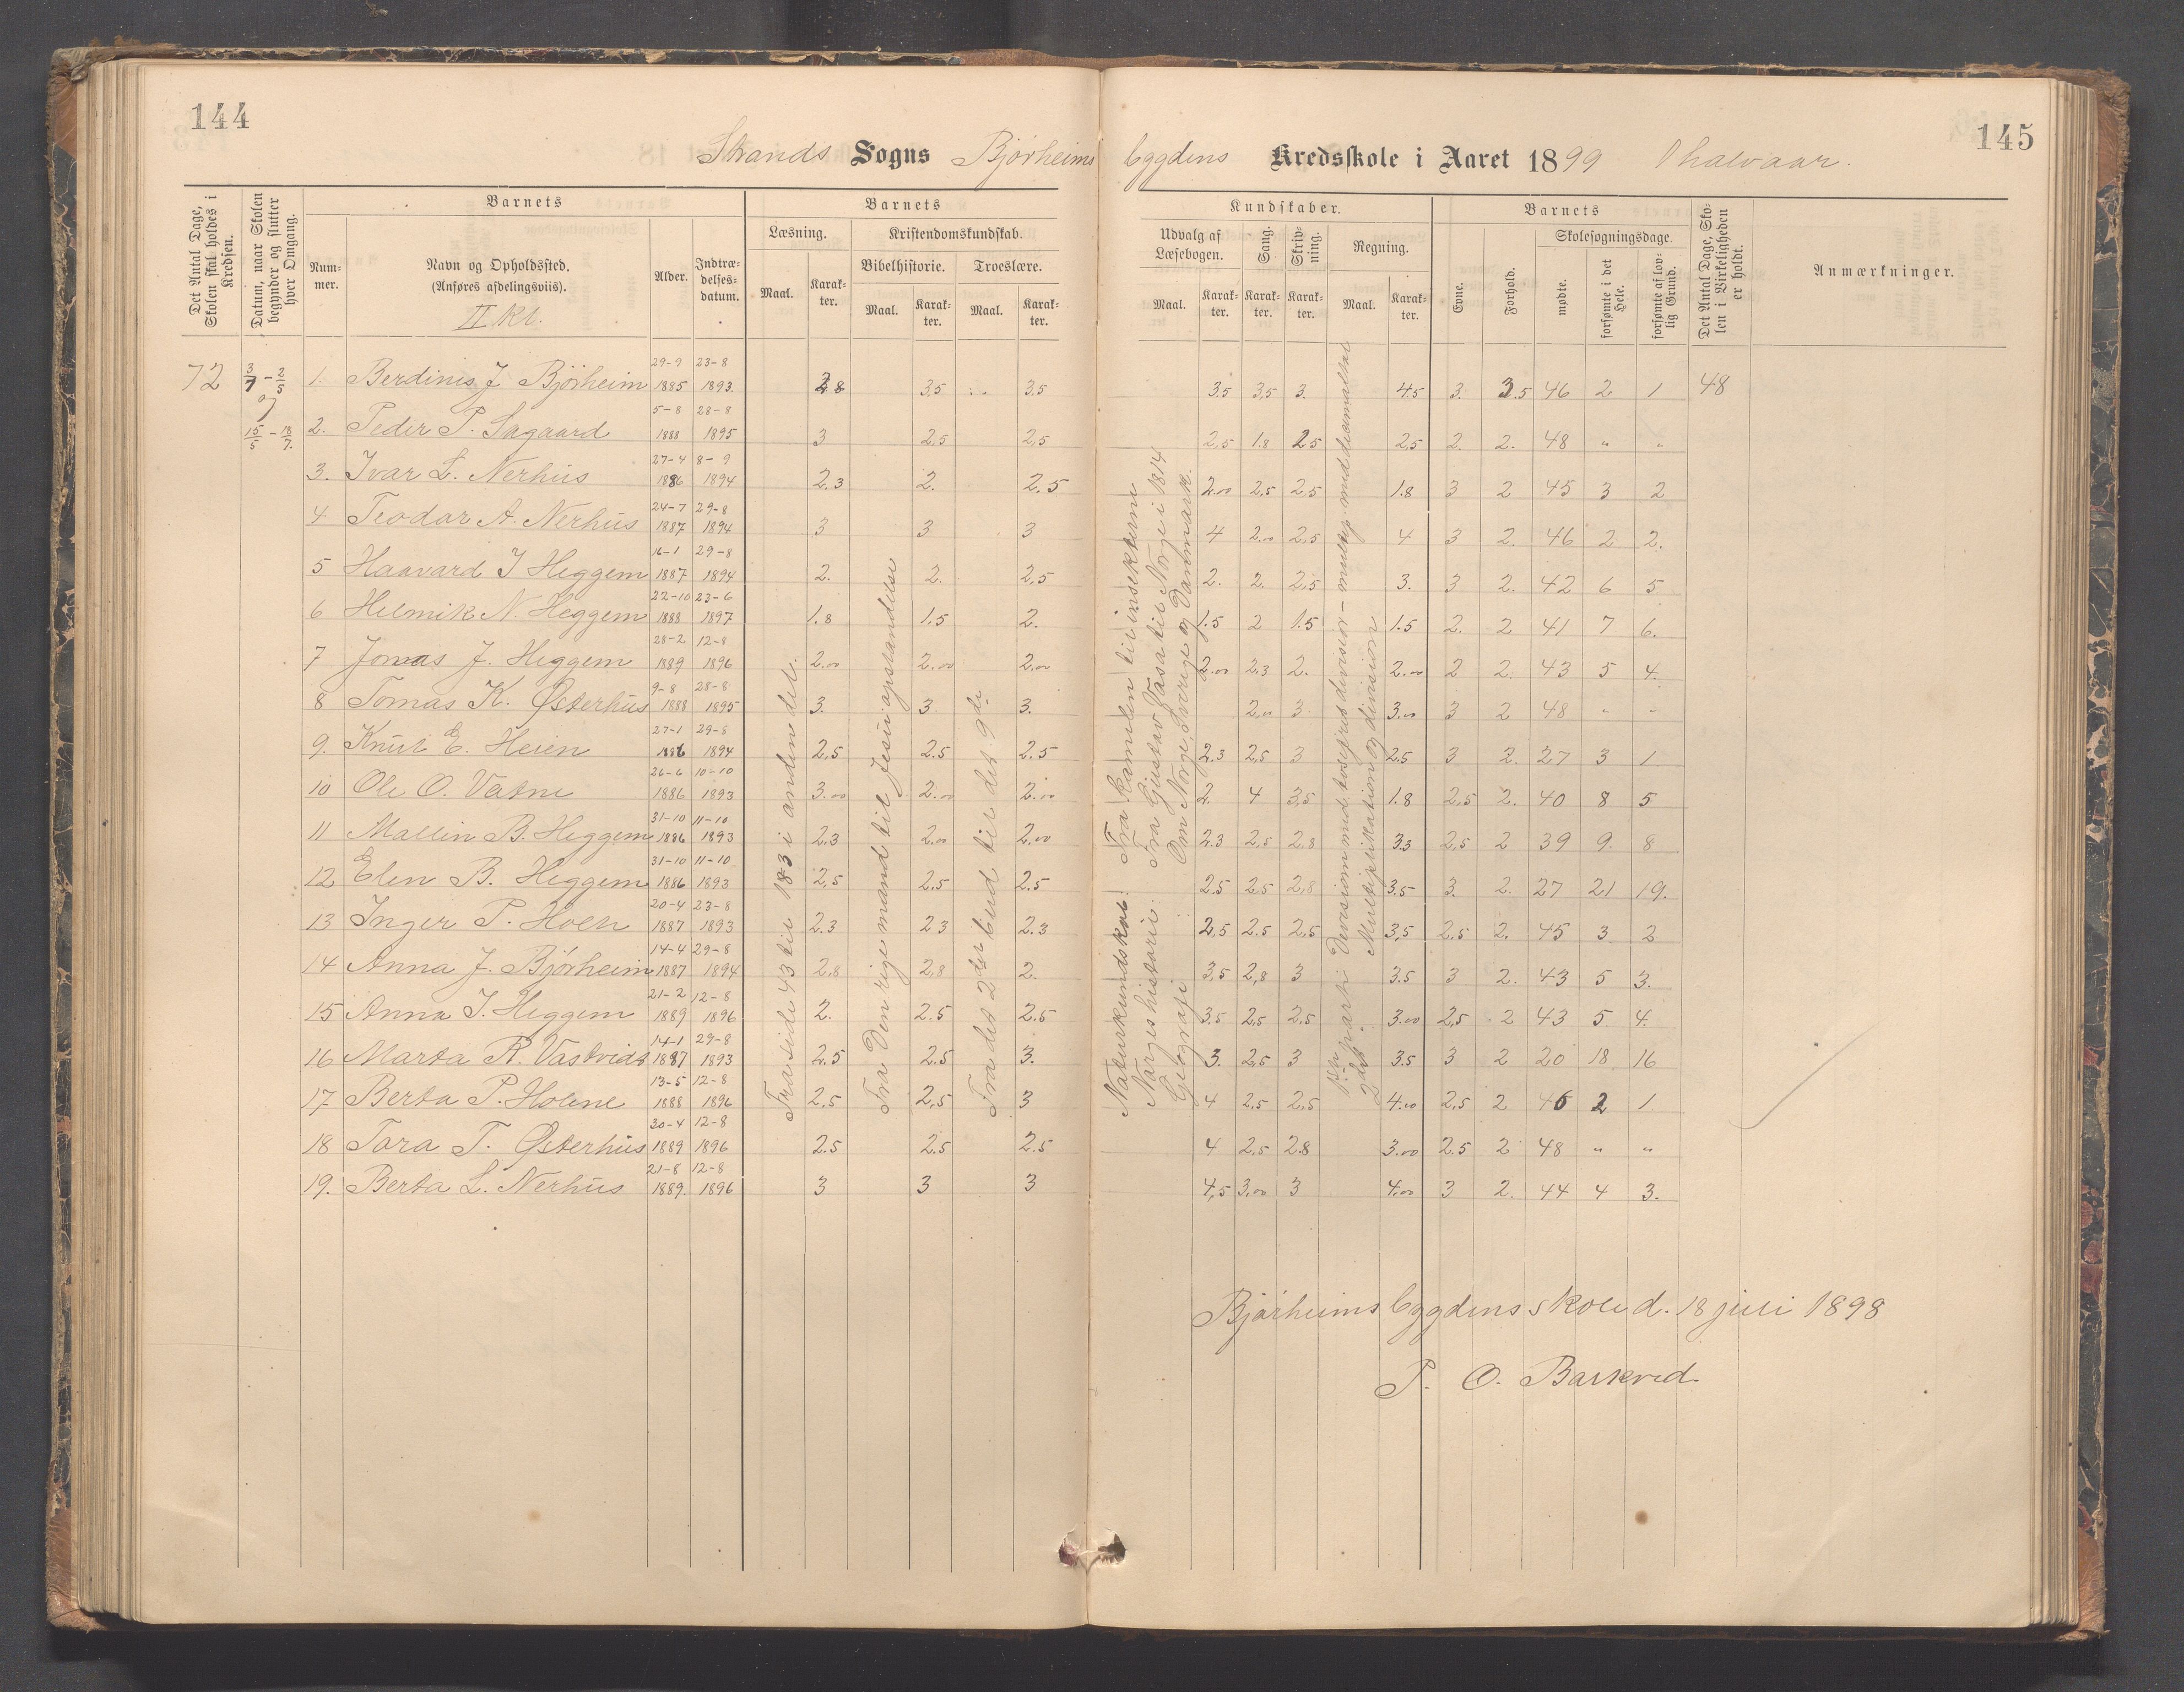 144
145
Strands Sogns Bjørheims bygdens Kredsskole i Aaret 1899 1 halvaar.
Det Antal Dage, Skolen skal holdes i Kredsen.
Datum, naar Skolen begynder og slutter hver Omgang.
Barnets
Num-mer.
Navn og Opholdssted.
(Anføres afdelingsviis).
II kl.
Alder.
Indtræ-delses-datum.
Barnets
Læsning.
Maal.
Karak-ter.
Kristendomskundskab.
Bibelhistorie.
Maal.
Karak-ter.
Troeslære.
Maal.
Karak-ter.
Kundskaber.
Udvalg af Læsebogen.
Maal.
Karak-ter.
Sang.
Karak-ter.
Skriv-ning.
Karak-ter.
Regning.
Maal.
Karak-ter.
Barnets
Evne.
Forhold.
Skolesøgningsdage.
mødte.
forsømte i det Hele.
forsømte af lov-lig Grund.
Det Antal Dage, Sko-len i Virkeligheden er holdt.
Anmærkninger.
72 3/7 - 2/5 og 15/5 - 18/7.
1. Berdines J. Bjørheim 29-9 1885 23-8 1893 2.8 3,5 3,5 3.5 3,5 3. 4.5 3. 3.5 46 2 1 48
2. Peder P. Sagaard 5-8 1888 28-8 1895 3 2,5 2,5 2,5 1.8 2.5 2,5 2. 2. 48 " "
3. Ivar L. Nerhus 27-4 1886 8-9 1894 2.3 2. 2.5 2.00 2,5 2,5 1.8 3 2 45 3 2
4 Teodor A. Nerhus 24-7 1887 29-8 1894 3 3 3 4 2.00 2,5 4 3 2. 46 2 2.
5 Haavard I Heggem 16-1 1887 29-8 1894 2. 2. 2,5 2. 2. 2,5 3. 3 2. 42 6 5
6 Helmik N. Heggem 22-10 1888 23-6 1897 1.8 1,5 2. 1.5 2 1.5 1.5 2. 2 41 7 6.
7 Jonas J. Heggem 28-2 1889 12-8 1896 2.00 2.00 2.00 2.00 2.3 2. 2.00 2 2. 43 5 4.
8 Tomas K. Østerhus 9-8 1888 28-8 1895 3. 3 3. 2.00 3 3.00 3 2 48 " "
9. Knut E. Heien 27-1 1886 29-8 1894 2,5 2.5 2.5 2.3 2,5 3 2.5 3 2. 27 3 1
10 Ole O. Vatne 26-6 1886 10-10 1893 3.00 2.00 2.00 2. 4 3,5 1.8 2,5 2. 40 8 5
11 Mallin B. Heggem 31-10 1886 11-10 1893 2.3 2.00 2.00 2.3 2.5 2.8 3.3 2,5 2 39 9. 8
12 Elen B. Heggem 31-10 1886 11-10 1893 2,5 2,5 2.5 2.5 2.5 2,8 3.5 3. 2. 27 21 19.
13 Inger P. Holen 20-4 1887 23-8 1893 2.3 2 3 2.3 2,5 2.5 2,5 3,5 2.5 2. 45 3 2
14 Anna J. Bjørheim 14-4 1887 29-8 1894 2,8 2,8 2. 3,5 2,8 3 3.5 3 2. 43 5 3.
15 Anna I. Heggem 21-2 1889 12-8 1896 2. 2.5 2.5 3,5 2,5 2,5 3.00 2,5 2 43 5 4.
16 Marta R. Vastvidt 14-1 1887 29-8 1893 2.5 2.5 3. 3. 2,5 3 3.5 3 2 20 18 16
17 Berta P. Holene 13-5 1888 12-8 1896 2.5 2,5 3 4 2,5 2,5 4.00 2,5 2 46 2 1
18 Tora T. Østerhus 30-4 1889 12-8 1896 2.5 2.5 2.5 4 2,5 2.8 3.00 2.5 2 48 " "
19. Berta L. Nerhus 21-8 1889. 12-8 1896 3 3 3 4,5 3,00 3 4.00 3 2. 44 4 3.
Fra side 43 til 183 i anden del.
Fra Den rige mand til Jesu opstandelse
Fra det 2det bud til det 9de
Naturkundskab: Fra kamelen til insekterne
Norges historie: Fra Gustav Vasa til Norge i 1814
Geografi Om Norge, Sverige og Danmark.
1ste parti Devision med tosifret divisor - multip. med tiermalhal
2det Multiplikation og division
Bjørheimsbygdens skole d. 18 juli 1898
P. O. Barkved.